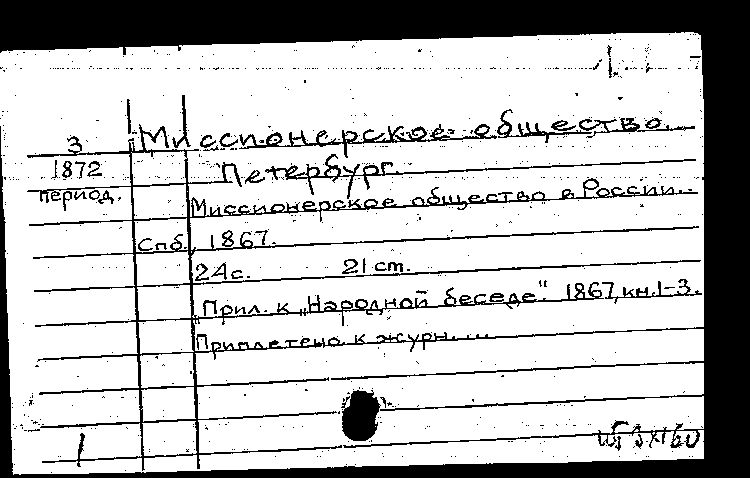 3 Миссионерское общество.
1872 Петербург.
период. Миссионерское общество в России..
Спб., 1867.
24с. 21 ст.
"Прил. к "Народной беседе". 1867, кн. 1-3.
Приплетено к журн....
1